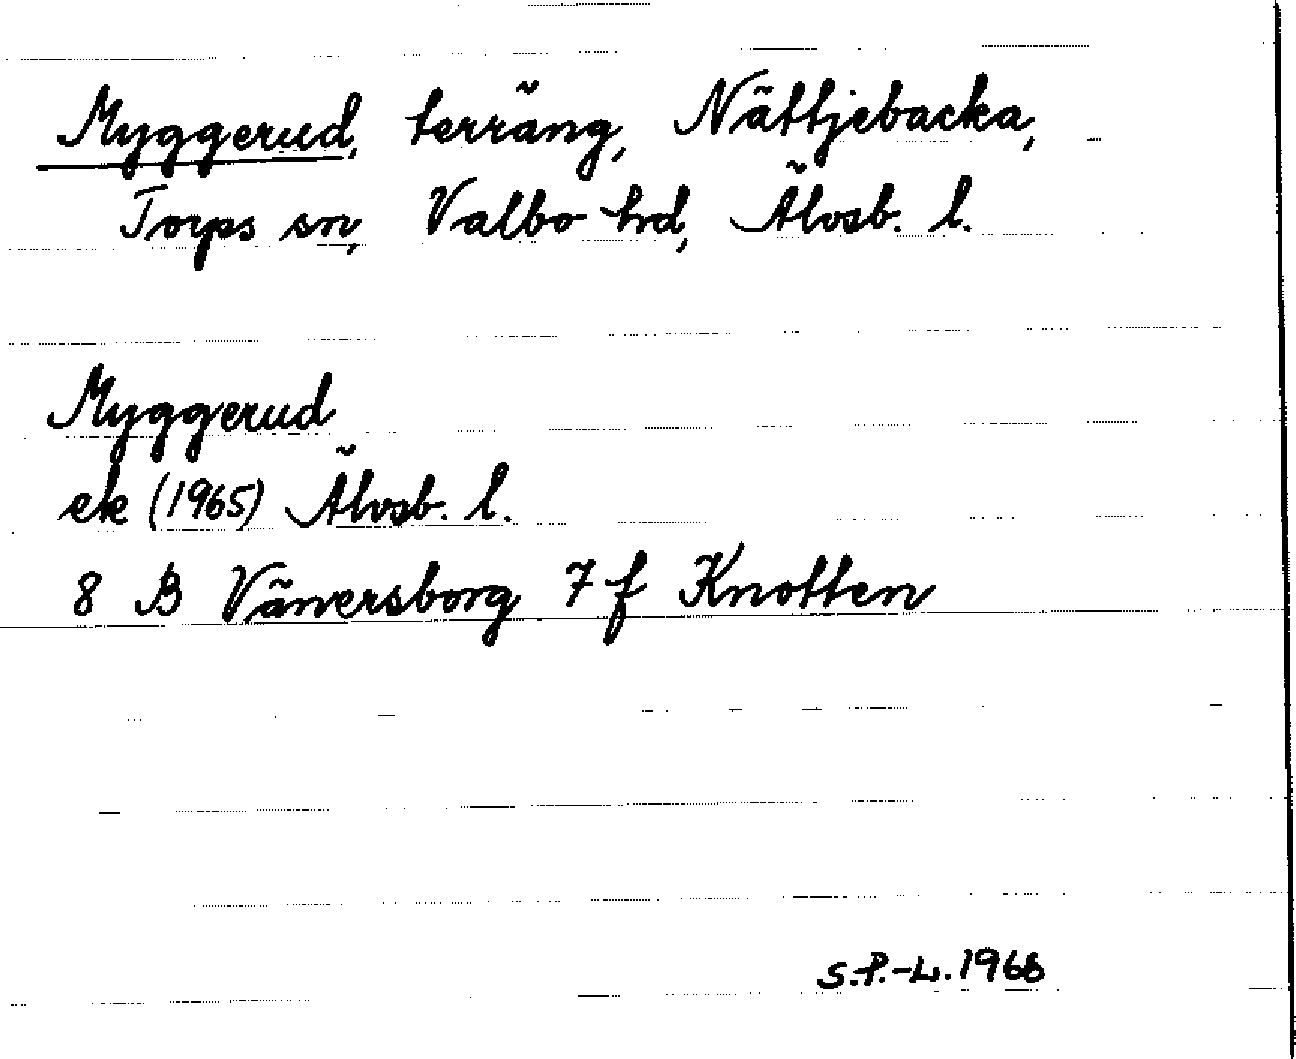 Myggerud, terräng, Nättjebacka,
Torps sn, Valbo hd, Älvsb. l.
Myggerud
ek (1965) Älvsb. l.
8 B Vänersborg 7 f Knotten
S.P.-L. 1968